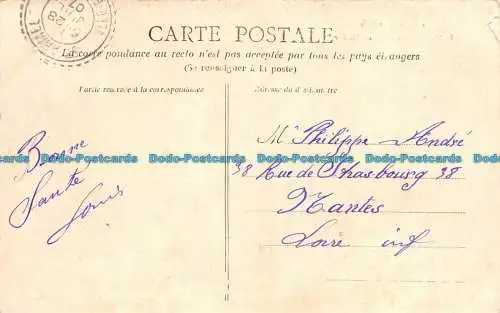 CARTE POSTALE
La correspondance au recto n'est pas acceptée par tous les pays étrangers
(Se renseigner à la poste)
Partie réservée à la correspondance
Adresse du destinataire
28
07
Bonne
Santé
Louis
Mr Philippe André
38 Rue de Strasbourg 38
Nantes
Loire inf
Dodo-Postcards Dodo-Postcards Dodo-Postcards Dodo-Postcards Dodo-Postcards